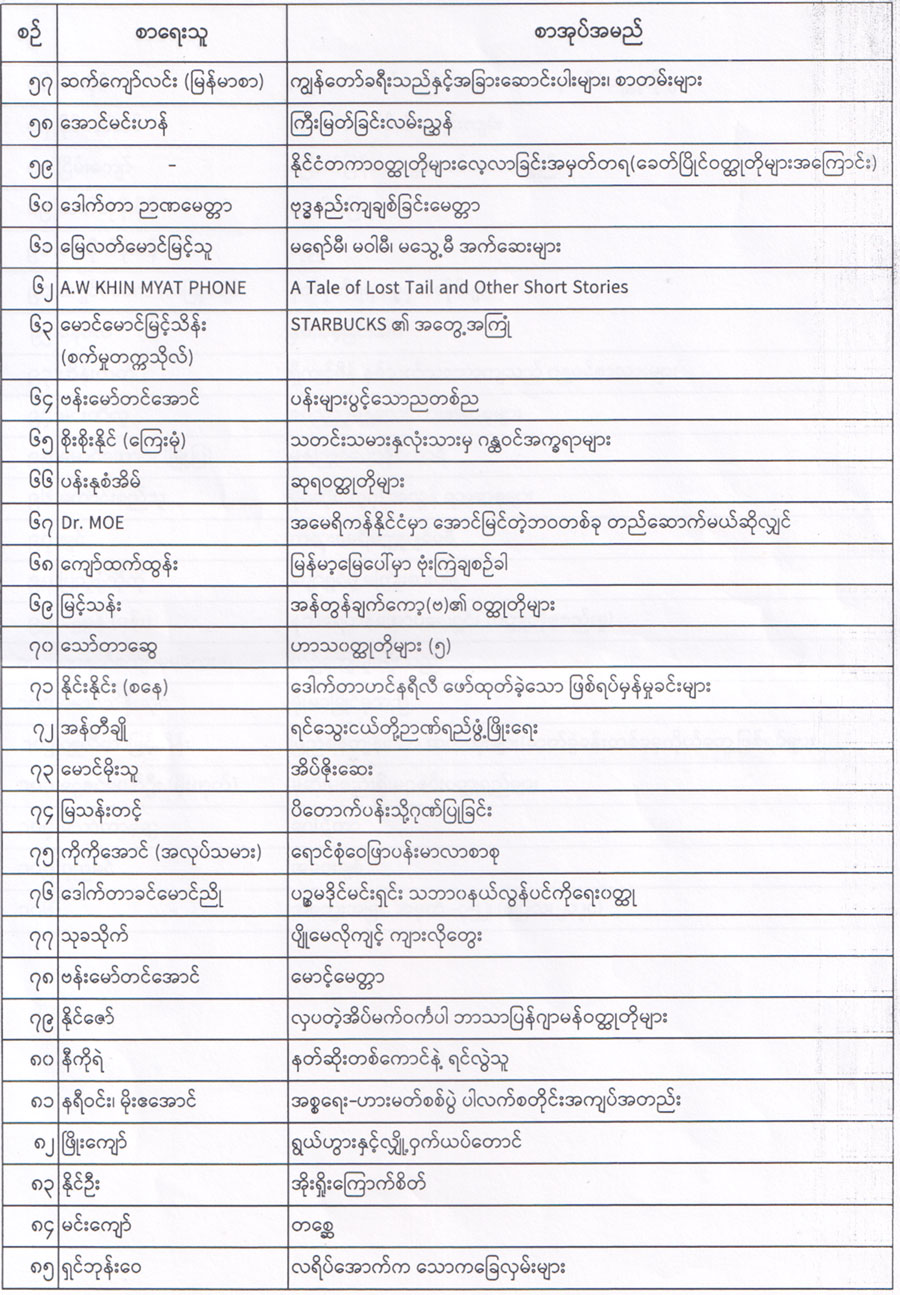 စဉ် စာရေးသူ စာအုပ်အမည်
၅၇ ဆက်ကျော်လင်း (မြန်မာစာ) ကျွန်တော်ခရီးသည်နှင့်အခြားဆောင်းပါးများ၊ စာတမ်းများ
၅၈ အောင်မင်းဟန် ကြီးမြတ်ခြင်းလမ်းညွှန်
၅၉ - နိုင်ငံတကာဝတ္ထုတိုများလေ့လာခြင်းအမှတ်တရ(ခေတ်ပြိုင်ဝတ္ထုတိုများအကြောင်း)
၆၀ ဒေါက်တာ ဉာဏမေတ္တာ ဗုဒ္ဓနည်းကျချစ်ခြင်းမေတ္တာ
၆၁ မြေလတ်မောင်မြင့်သူ မရော်မီ၊ မဝါမီ၊ မသွေ့မီ အက်ဆေးများ
၆၂ A.W KHIN MYAT PHONE A Tale of Lost Tail and Other Short Stories
၆၃ မောင်မောင်မြင့်သိန်း STARBUCKS ၏ အတွေ့အကြုံ
(စက်မှုတက္ကသိုလ်)
၆၄ ဗန်းမော်တင်အောင် ပန်းများပွင့်သောညတစ်ည
၆၅ စိုးစိုးနိုင် (ကြေးမုံ) သတင်းသမားနှလုံးသားမှ ဂန္ထဝင်အက္ခရာများ
၆၆ ပန်းနုစံအိမ် ဆုရဝတ္ထုတိုများ
၆၇ Dr. MOE အမေရိကန်နိုင်ငံမှာ အောင်မြင်တဲ့ဘဝတစ်ခု တည်ဆောက်မယ်ဆိုလျှင်
၆၈ ကျော်ထက်ထွန်း မြန်မာ့မြေပေါ်မှာ ဗုံးကြဲချစဉ်ခါ
၆၉ မြင့်သန်း အန်တွန်ချက်ကော့(ဗ)၏ ဝတ္ထုတိုများ
၇၀ သော်တာဆွေ ဟာသဝတ္ထုတိုများ (၅)
၇၁ နိုင်းနိုင်း (စနေ) ဒေါက်တာဟင်နရီလီ ဖော်ထုတ်ခဲ့သော ဖြစ်ရပ်မှန်မှုခင်းများ
၇၂ အန်တီချို ရင်သွေးငယ်တို့ဉာဏ်ရည်ဖွံ့ဖြိုးရေး
၇၃ မောင်မိုးသူ အိပ်ဇိုးဆေး
၇၄ မြသန်းတင့် ပိတောက်ပန်းသို့ဂုဏ်ပြုခြင်း
၇၅ ကိုကိုအောင် (အလုပ်သမား) ရောင်စုံဝေဖြာပန်းမာလာစာစု
၇၆ ဒေါက်တာခင်မောင်ညို ပဉ္စမဒိုင်မင်းရှင်း သဘာဝနယ်လွန်ပင်ကိုရေးဝတ္ထု
၇၇ သုခသိုက် ပျိုမေလိုကျင့် ကျားလိုတွေး
၇၈ ဗန်းမော်တင်အောင် မောင့်မေတ္တာ
၇၉ နိုင်ဇော် လှပတဲ့အိပ်မက်ဝင်္ကပါ ဘာသာပြန်ဂျာမန်ဝတ္ထုတိုများ
၈၀ နီကိုရဲ နတ်ဆိုးတစ်ကောင်နဲ့ ရင်လွဲသူ
၈၁ နရီဝင်း၊ မိုးဧအောင် အစ္စရေး-ဟားမတ်စစ်ပွဲ ပါလက်စတိုင်းအကျပ်အတည်း
၈၂ ဖြိုးကျော် ရွယ်ဟွားနှင့်လျှို့ဝှက်ယပ်တောင်
၈၃ နိုင်ဦး အိုးရှိုးကြောက်စိတ်
၈၄ မင်းကျော် တစ္ဆေ
၈၅ ရှင်ဘုန်းဝေ လရိပ်အောက်က သောကခြေလှမ်းများ